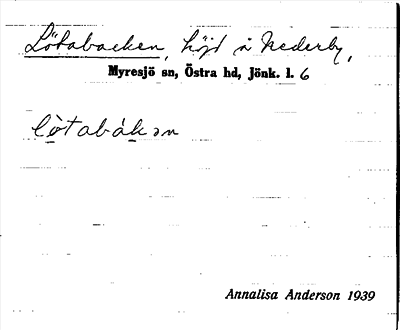 Lötabacken, höjd å Nederby,
Myresjö sn, Östra hd, Jönk. l. 6
lò̱tabák̠ən
Annalisa Anderson 1939